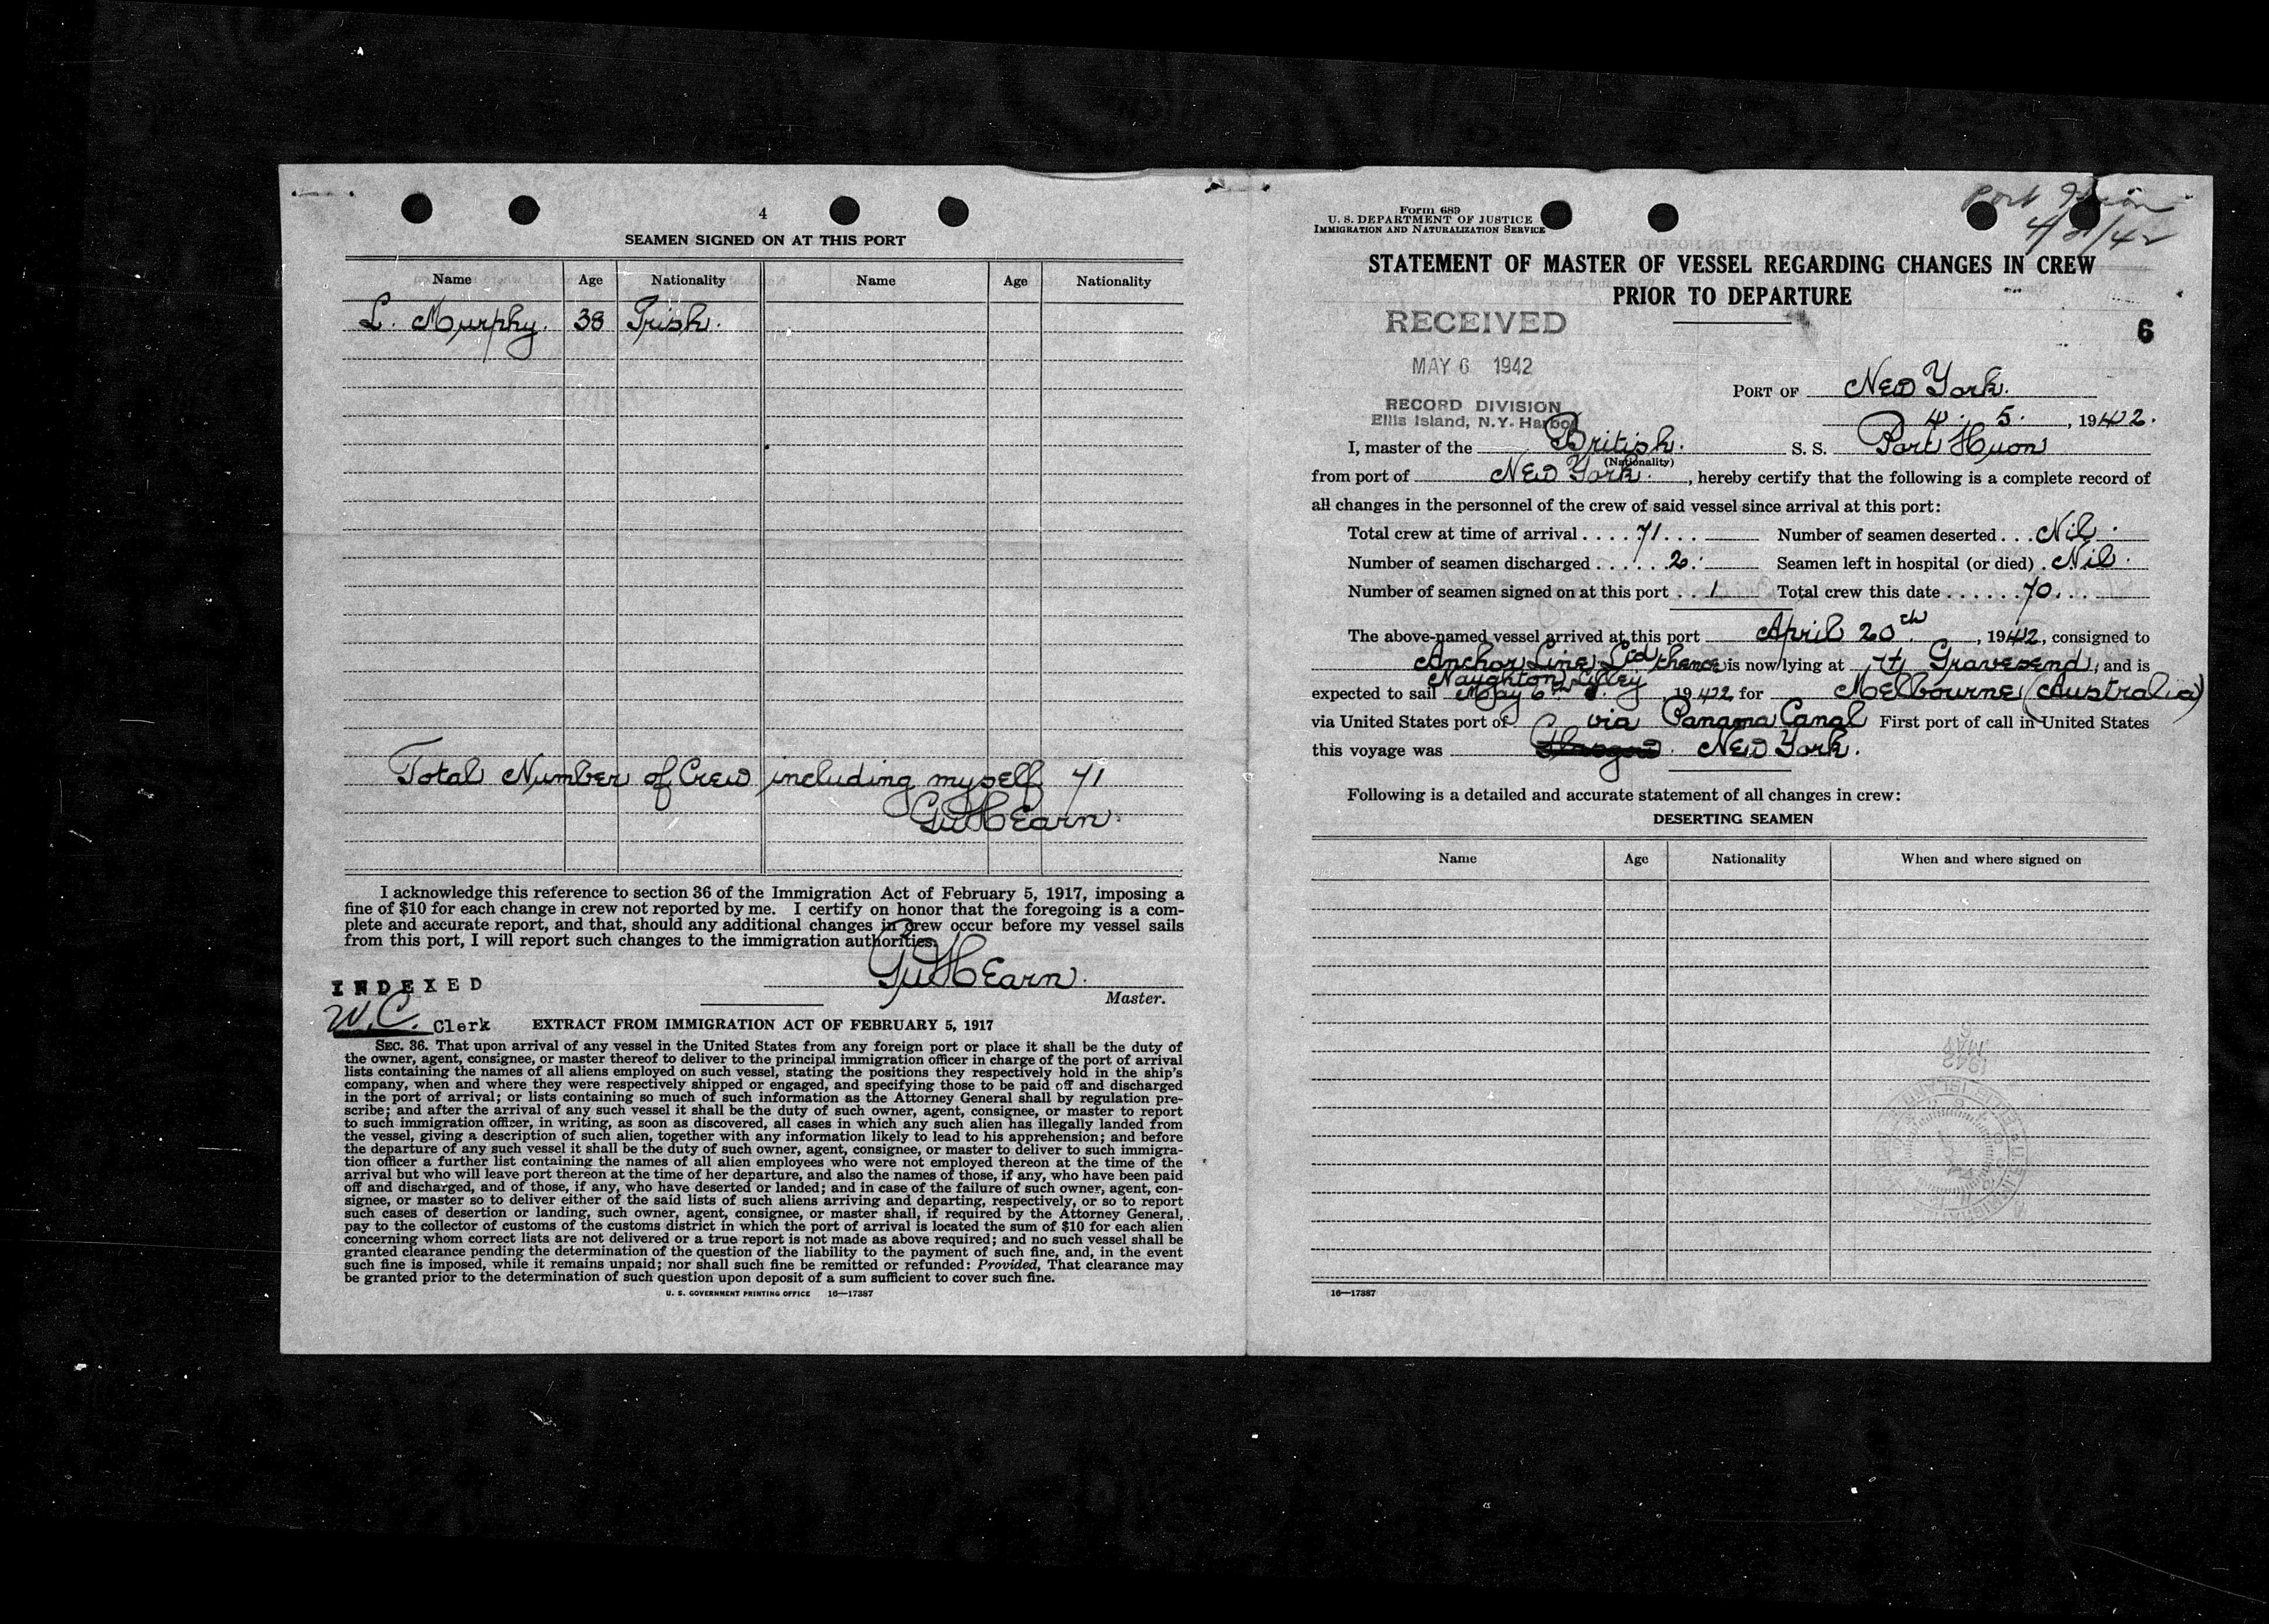 4
SEAMEN SIGNED ON AT THIS PORT
Name Age Nationality Name Age Nationality
L. Murphy. 38 Irish.
Total Number of Crew including myself 71
GWHEarn.
I acknowledge this reference to section 36 of the Immigration Act of February 5, 1917, imposing a
fine of $10 for each change in crew not reported by me. I certify on honor that the foregoing is a com-
plete and accurate report, and that, should any additional changes in crew occur before my vessel sails
from this port, I will report such changes to the immigration authorities.
GWHEarn.
Master.
INDEXED
W.C. Clerk
EXTRACT FROM IMMIGRATION ACT OF FEBRUARY 5, 1917
SEC. 36. That upon arrival of any vessel in the United States from any foreign port or place it shall be the duty of
the owner, agent, consignee, or master thereof to deliver to the principal immigration officer in charge of the port of arrival
lists containing the names of all aliens employed on such vessel, stating the positions they respectively hold in the ship's
company, when and where they were respectively shipped or engaged, and specifying those to be paid off and discharged
in the port of arrival; or lists containing so much of such information as the Attorney General shall by regulation pre-
scribe; and after the arrival of any such vessel it shall be the duty of such owner, agent, consignee, or master to report
to such immigration officer, in writing, as soon as discovered, all cases in which any such alien has illegally landed from
the vessel, giving a description of such alien, together with any information likely to lead to his apprehension; and before
the departure of any such vessel it shall be the duty of such owner, agent, consignee, or master to deliver to such immigra-
tion officer a further list containing the names of all alien employees who were not employed thereon at the time of the
arrival but who will leave port thereon at the time of her departure, and also the names of those, if any, who have been paid
off and discharged, and of those, if any, who have deserted or landed; and in case of the failure of such owner, agent, con-
signee, or master so to deliver either of the said lists of such aliens arriving and departing, respectively, or so to report
such cases of desertion or landing, such owner, agent, consignee, or master shall, if required by the Attorney General,
pay to the collector of customs of the customs district in which the port of arrival is located the sum of $10 for each alien
concerning whom correct lists are not delivered or a true report is not made as above required; and no such vessel shall be
granted clearance pending the determination of the question of the liability to the payment of such fine, and, in the event
such fine is imposed, while it remains unpaid; nor shall such fine be remitted or refunded: Provided, That clearance may
be granted prior to the determination of such question upon deposit of a sum sufficient to cover such fine.
U. S. GOVERNMENT PRINTING OFFICE 16—17387
Port Huon
4/21/42
Form 689
U. S. DEPARTMENT OF JUSTICE
IMMIGRATION AND NATURALIZATION SERVICE
STATEMENT OF MASTER OF VESSEL REGARDING CHANGES IN CREW
PRIOR TO DEPARTURE
RECEIVED
6
MAY 6 1942
RECORD DIVISION
Ellis Island, N.Y. Harbor
PORT OF New York.
4. 5. , 1942.
I, master of the British. S. S. Port Huon
(Nationality)
from port of New York. , hereby certify that the following is a complete record of
all changes in the personnel of the crew of said vessel since arrival at this port:
Total crew at time of arrival .... 71... Number of seamen deserted ... Nil.
Number of seamen discharged ...... 2. Seamen left in hospital (or died) . Nil.
Number of seamen signed on at this port .. 1 Total crew this date ...... 70...
The above-named vessel arrived at this port April 20th. , 1942, consigned to
Anchor Line Ltd thence is now lying at Gravesend, and is
Naughton Lilley
expected to sail May 6th , 1942 for Melbourne (Australia)
via United States port of via Panama Canal First port of call in United States
this voyage was Glasgow. New York.
Following is a detailed and accurate statement of all changes in crew:
DESERTING SEAMEN
Name Age Nationality When and where signed on
16—17387